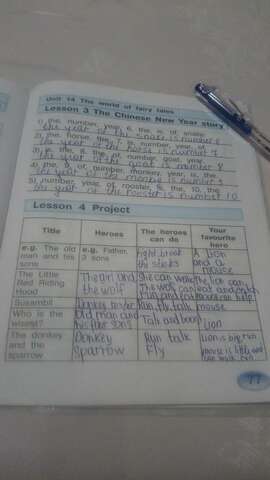 Unit 14 The world of fairy tales
Lesson 3 The Chinese New Year story
1) the, number, year, 6, the, is, of, snake.
the year of the snake is number 6
2) the, horse, the, 7, is, number, year, of.
the year of the horse is number 7
3) is, the, 8, the, of, number, goat, year.
the year of the goat is number 8
4) the, 9, of, number, monkey, year, is, the.
the year of the monkey is number 9
5) number, year, of, rooster, is, the, 10, the.
the year of the rooster is number 10
Lesson 4 Project
Title
Heroes
The heroes can do
Your favourite hero
e.g. The old man and his sons
e.g. Father, 3 sons
break the sticks
A lion and a mouse
The Little Red Riding Hood
The girl and the wolf
She can walk
The wolf can eat and run
The lion can
and mouse can help
Susambil
Donkey rooster
Run fly talk
mouse
Who is the wisest?
Old man and his four sons
Talk and
Lion
The donkey and the sparrow
Donkey sparrow
Run talk Fly
Lion is big run
mouse is little and
can walk run
77